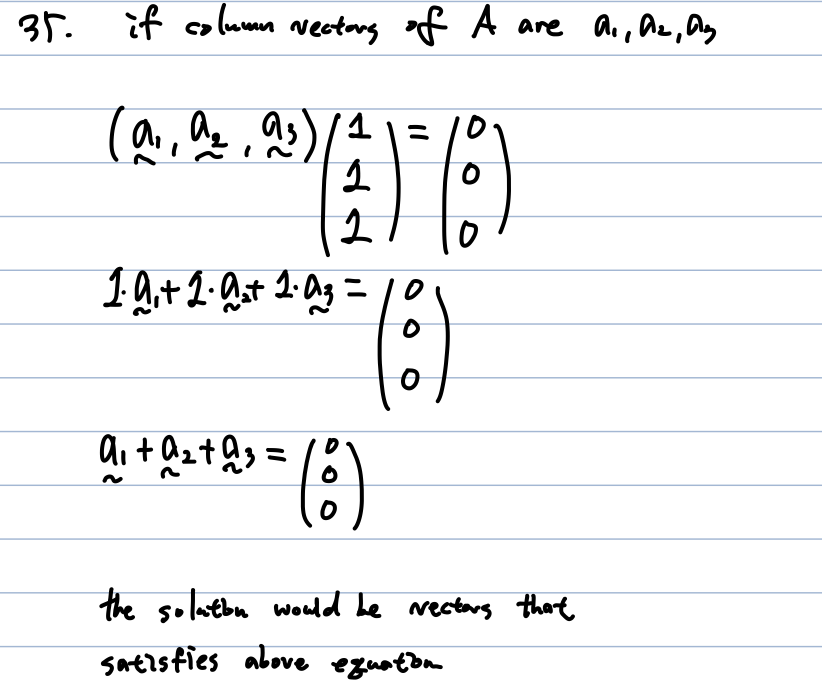 35. if column vectors of A are a₁, a₂, a₃
(a̰₁, a̰₂, a̰₃) (1 1 1) = (0 0 0)
1·a̰₁ + 1·a̰₂ + 1·a̰₃ = (0 0 0)
a̰₁ + a̰₂ + a̰₃ = (0 0 0)
the solution would be vectors that
satisfies above equation